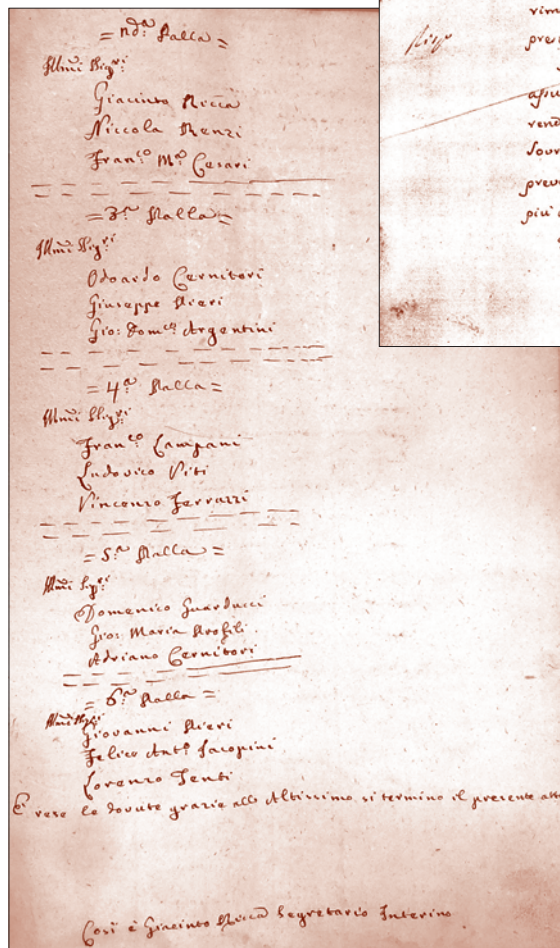 = nda: Palla =
Illmi Sigri:
Giacinto Ricca
Niccola Renzi
Franco: Ma: Cesari
= 3a: Palla =
Illmi Sigri
Odoardo Cernitori
Giuseppe Nieri
Gio: Domco: Argentini
= 4a Palla =
Illmi Sigri
Franco: Campani
Ludovico Viti
Vincenzo Ferrazzi
= 5a: Palla =
Illmi Sigri
Domenico Guarducci
Gio: Maria
Adriano Cernitori
= 6a: Palla =
Illmi Sigri
Giovanni Nieri
Felice Anto: Jacopini
Lorenzo Tenti
E rese le dovute grazie all Altissimo si termino il presente
Così è Giacinto Ricca Segretario Interino